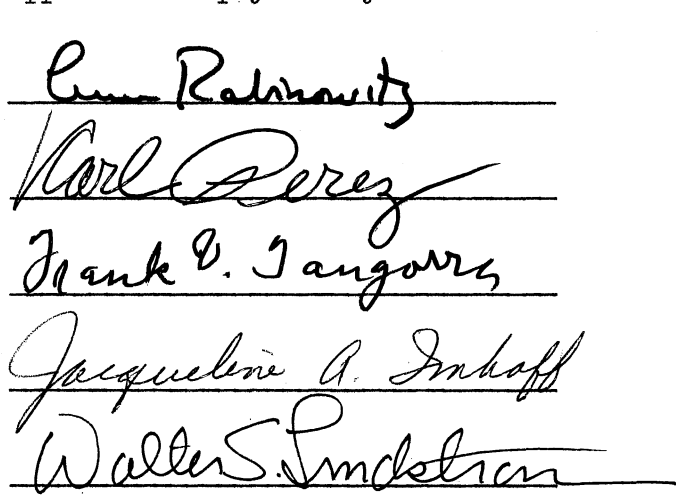 Rabinowitz
Karl Perez
Frank V. Tangorra
Jacqueline A. Imhoff
Walter S. Lindstrom